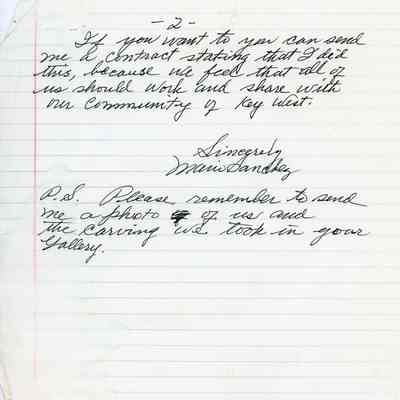 - 2 -
If you want to you can send
me a contract stating that I did
this, because we feel that all of
us should work and share with
our community of Key West.
Sincerely
Mario Sanchez
P.S. Please remember to send
me a photo of us and
the carving we took in your
Gallery.